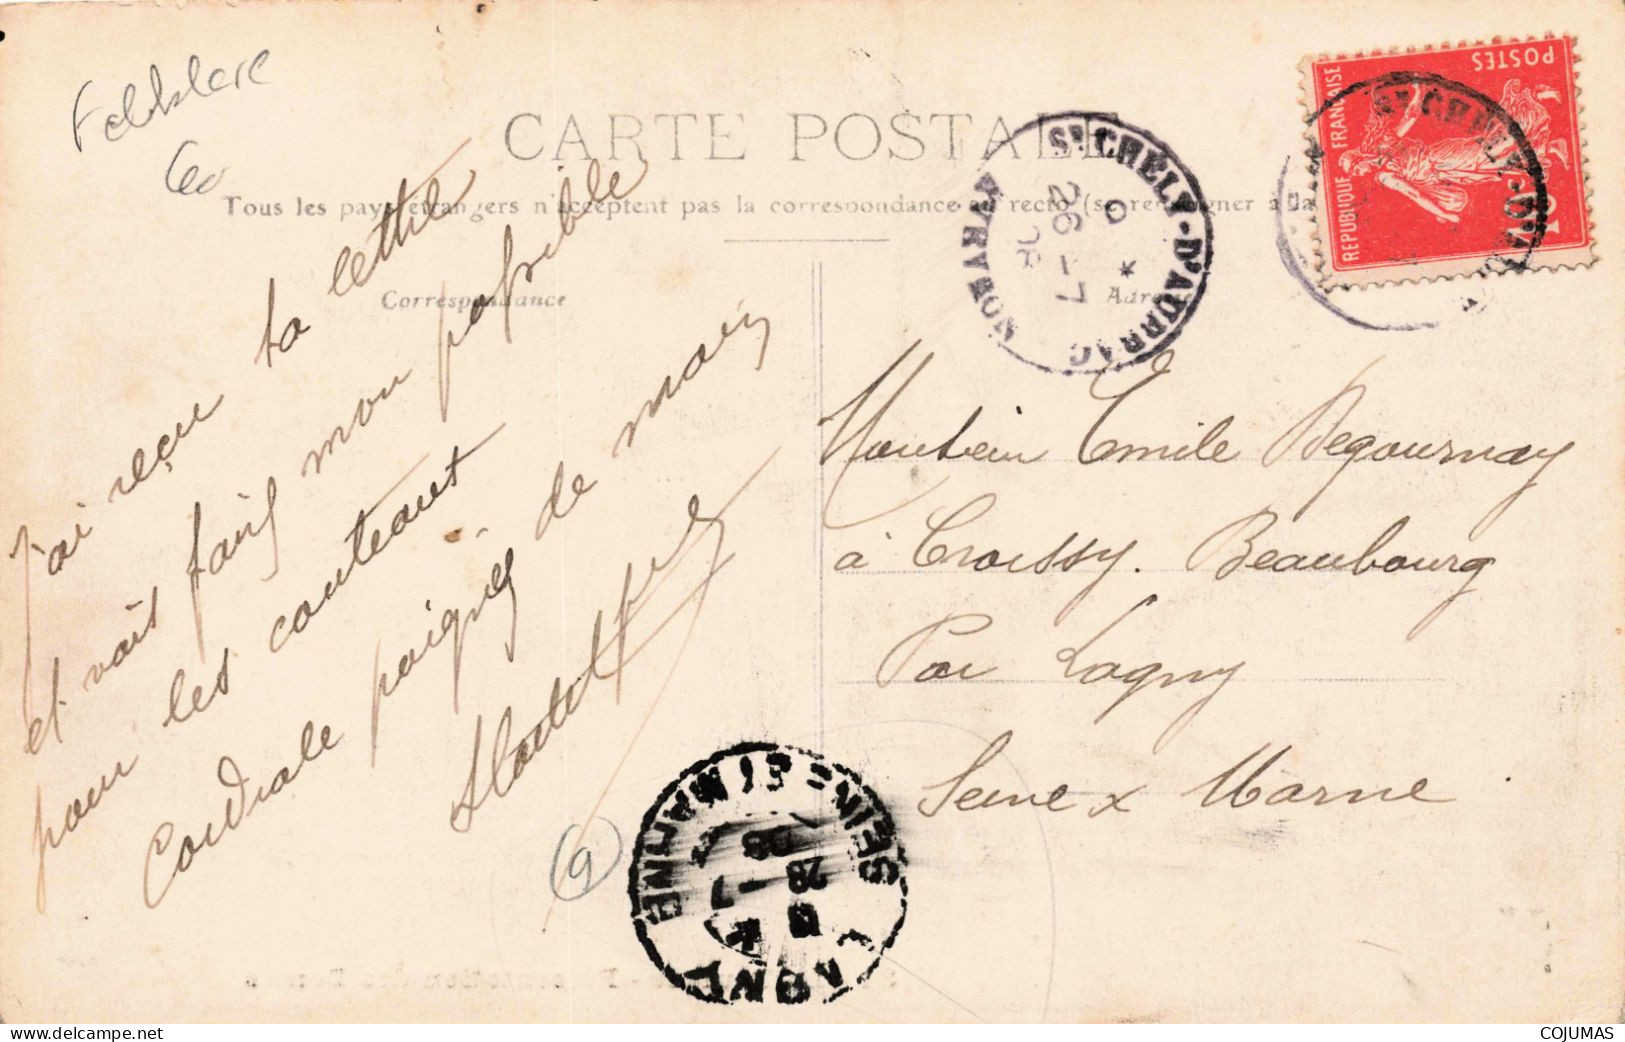 Folklore
60
CARTE POSTALE
Tous les pays étrangers n'acceptent pas la correspondance au recto (se renseigner à la
Correspondance
Adresse
J'ai reçu ta lettre
et vais faire mon possible
pour les couteaux
Cordiale poignés de main
9
Monsieur Emile Begournay
à Croissy. Beaubourg
Par Lagny
Seine & Marne
ST CHÉLY-D'AUBRAC
AVEYRON
26 -7
08
LAGNY
SEINE-ET-MARNE
28 -7
08
REPUBLIQUE FRANÇAISE
POSTES
10
ST CHELY-D'AU
COJUMAS